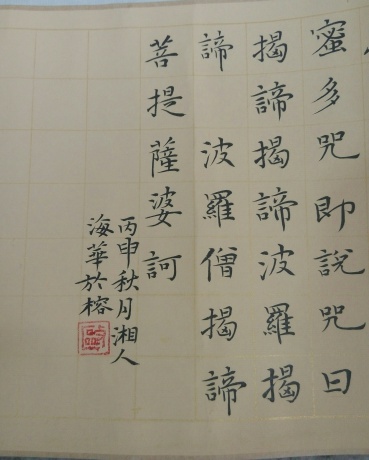 蜜多咒即說咒曰
揭諦揭諦波羅揭
諦 波羅僧揭諦
菩提薩婆訶
丙申秋月湘人
海華於榕